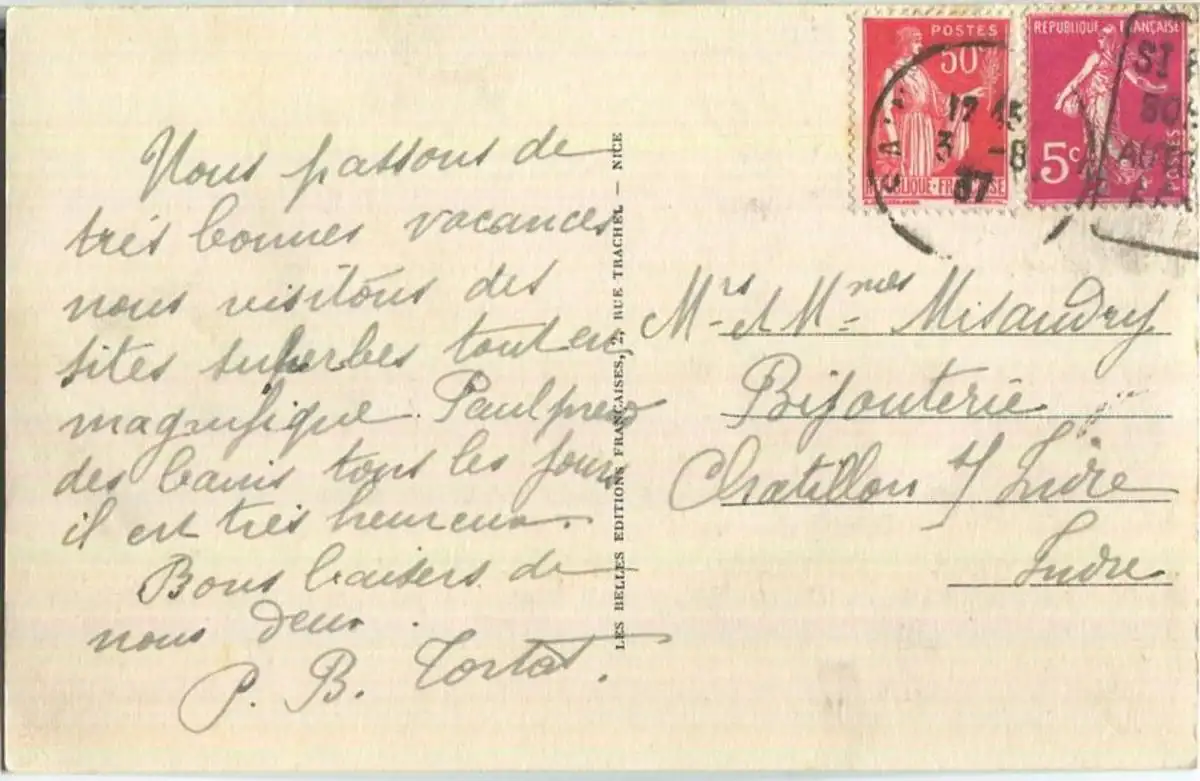 Nous passons de
très bonnes vacances
nous visitons des
sites superbes tout en
magnifique Paul prend
des bains tous les jours
il est très heureux.
Bons baisers de
nous deux.
P. B. Tortat.
LES BELLES EDITIONS FRANÇAISES, 2, RUE TRACHEL - NICE
POSTES
50c
REPUBLIQUE-FRANÇAISE
REPUBLIQUE FRANÇAISE
5c
POSTES
17 45
3 -8
37
Mrs et Mmes Misandry
Bijouterie
Chatillon s/ Indre
Indre